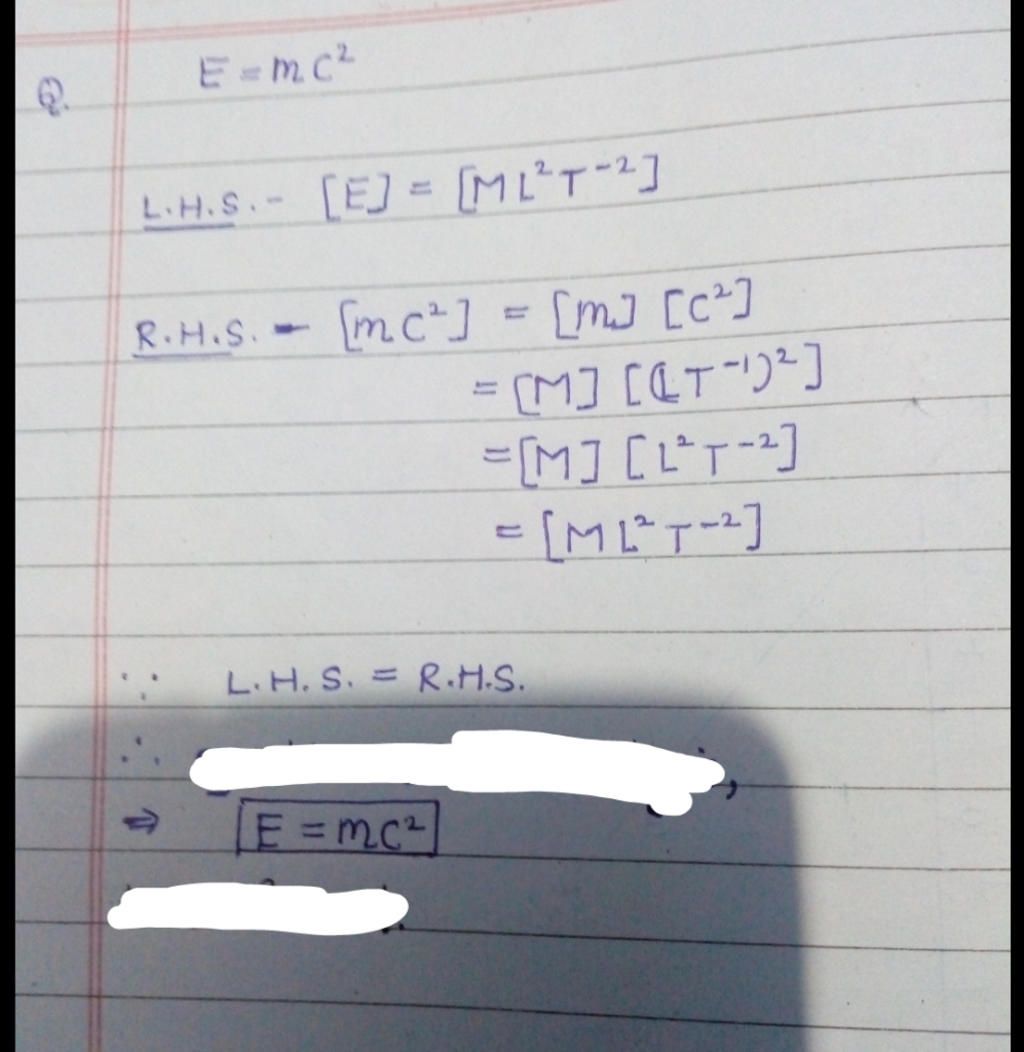 Q. E = mc²
L.H.S. - [E] = [ML²T⁻²]
R.H.S. - [mc²] = [m] [c²]
= [M] [(LT⁻¹)²]
= [M] [L²T⁻²]
= [ML²T⁻²]
∵ L.H.S. = R.H.S.
∴ ,
⇒ E = mc²